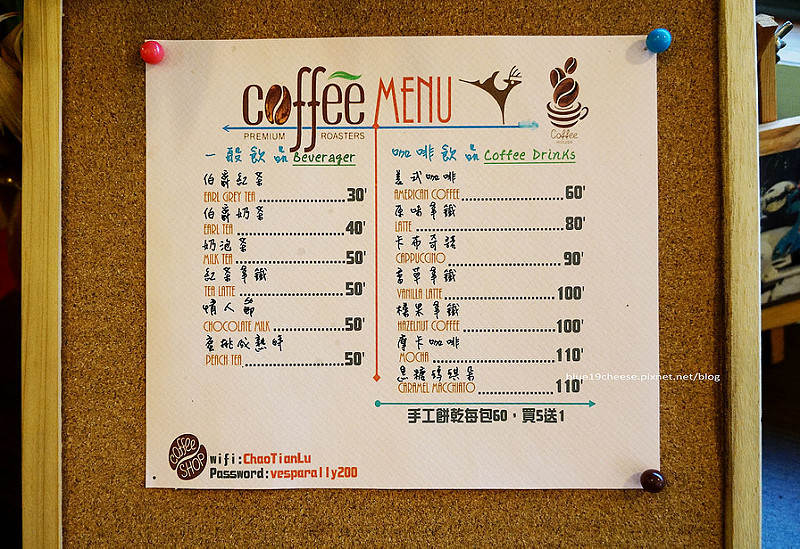 coffee MENU
PREMIUM ROASTERS
Coffee
HOUSE
一般飲品 Beverager
伯爵紅茶
EARL GREY TEA 30'
伯爵奶茶
EARL TEA 40'
奶泡茶
MILK TEA 50'
紅茶拿鐵
TEA LATTE 50'
情人節
CHOCOLATE MILK 50'
蜜桃戀熱時
PEACH TEA 50'
咖啡飲品 Coffee Drinks
美式咖啡
AMERICAN COFFEE 60'
原味拿鐵
LATTE 80'
卡布奇諾
CAPPUCCINO 90'
香草拿鐵
VANILLA LATTE 100'
榛果拿鐵
HAZELNUT COFFEE 100'
摩卡咖啡
MOCHA 110'
焦糖瑪琪朵
CARAMEL MACCHIATO 110'
手工餅乾每包60，買5送1
coffee SHOP
wifi:ChaoTianLu
Password:vesparally200
blue19cheese.pixnet.net/blog